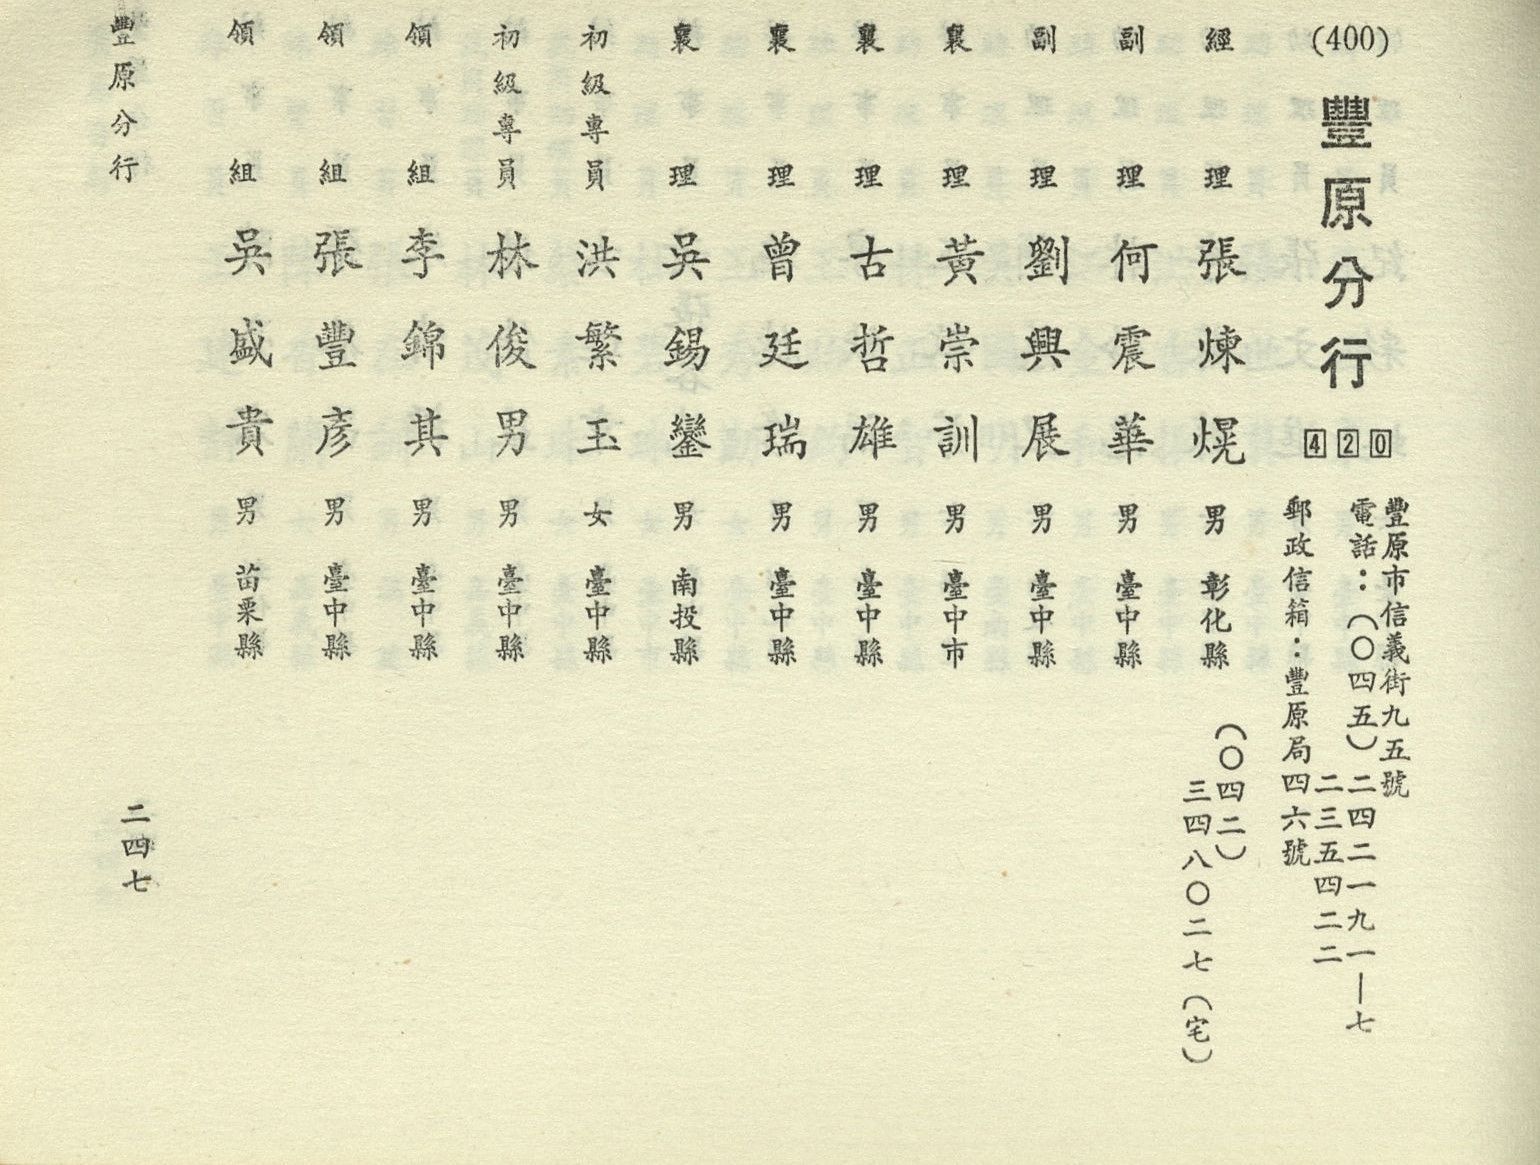 (400)
豐原分行
420
豐原市信義街九五號
電話：（〇四五）二四二一九一—七
二三五四二二
郵政信箱：豐原局四六號
經理 張煉熀 男 彰化縣
（〇四二）
三四八〇二七（宅）
副理 何震華 男 臺中縣
副理 劉興展 男 臺中縣
襄理 黃崇訓 男 臺中市
襄理 古哲雄 男 臺中縣
襄理 曾廷瑞 男 臺中縣
襄理 吳錫鑾 男 南投縣
初級專員 洪繁玉 女 臺中縣
初級專員 林俊男 男 臺中縣
領組 李錦其 男 臺中縣
領組 張豐彥 男 臺中縣
領組 吳盛貴 男 苗栗縣
豐原分行
二四七